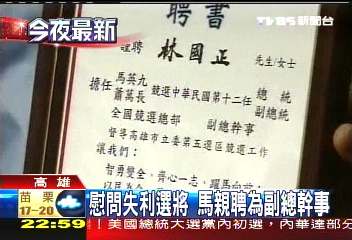 今夜最新
TVBS 新聞台
聘書
謹聘 林國正 先生/女士
擔任 馬英九 蕭萬長 競選中華民國第十二任 總統 副總統
全國競選總部 副總幹事
督導高雄市立委第五選區競選工作
讓我們：
智勇雙全、齊心一志、躍馬向前
高雄
慰問失利選將 馬親聘為副總幹事
苗栗
17-20
22:59
美國總統大選黨內初選，內華達部分